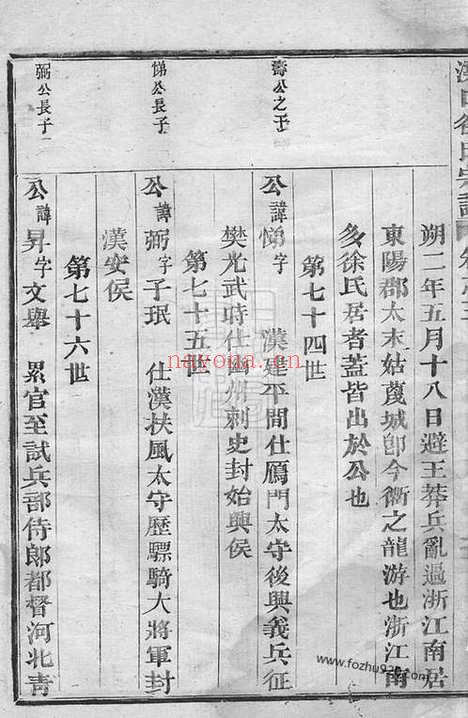 徐氏宗譜
朔二年五月十八日避王莽兵亂過浙江南居
東陽郡太末姑蔑城卽今衢之龍游也浙江南
多徐氏居者蓋皆出於公也
第七十四世
壽公之子
公諱悌字 漢建平間仕鴈門太守後興義兵征
樊光武時仕幽州刺史封始興侯
第七十五世
悌公長子
公諱弼字子珉 仕漢扶風太守歷驃騎大將軍封
漢安侯
第七十六世
弼公長子
公諱昇字文舉 累官至試兵部侍郎都督河北青
nayona.cn
www.fozhu920.com